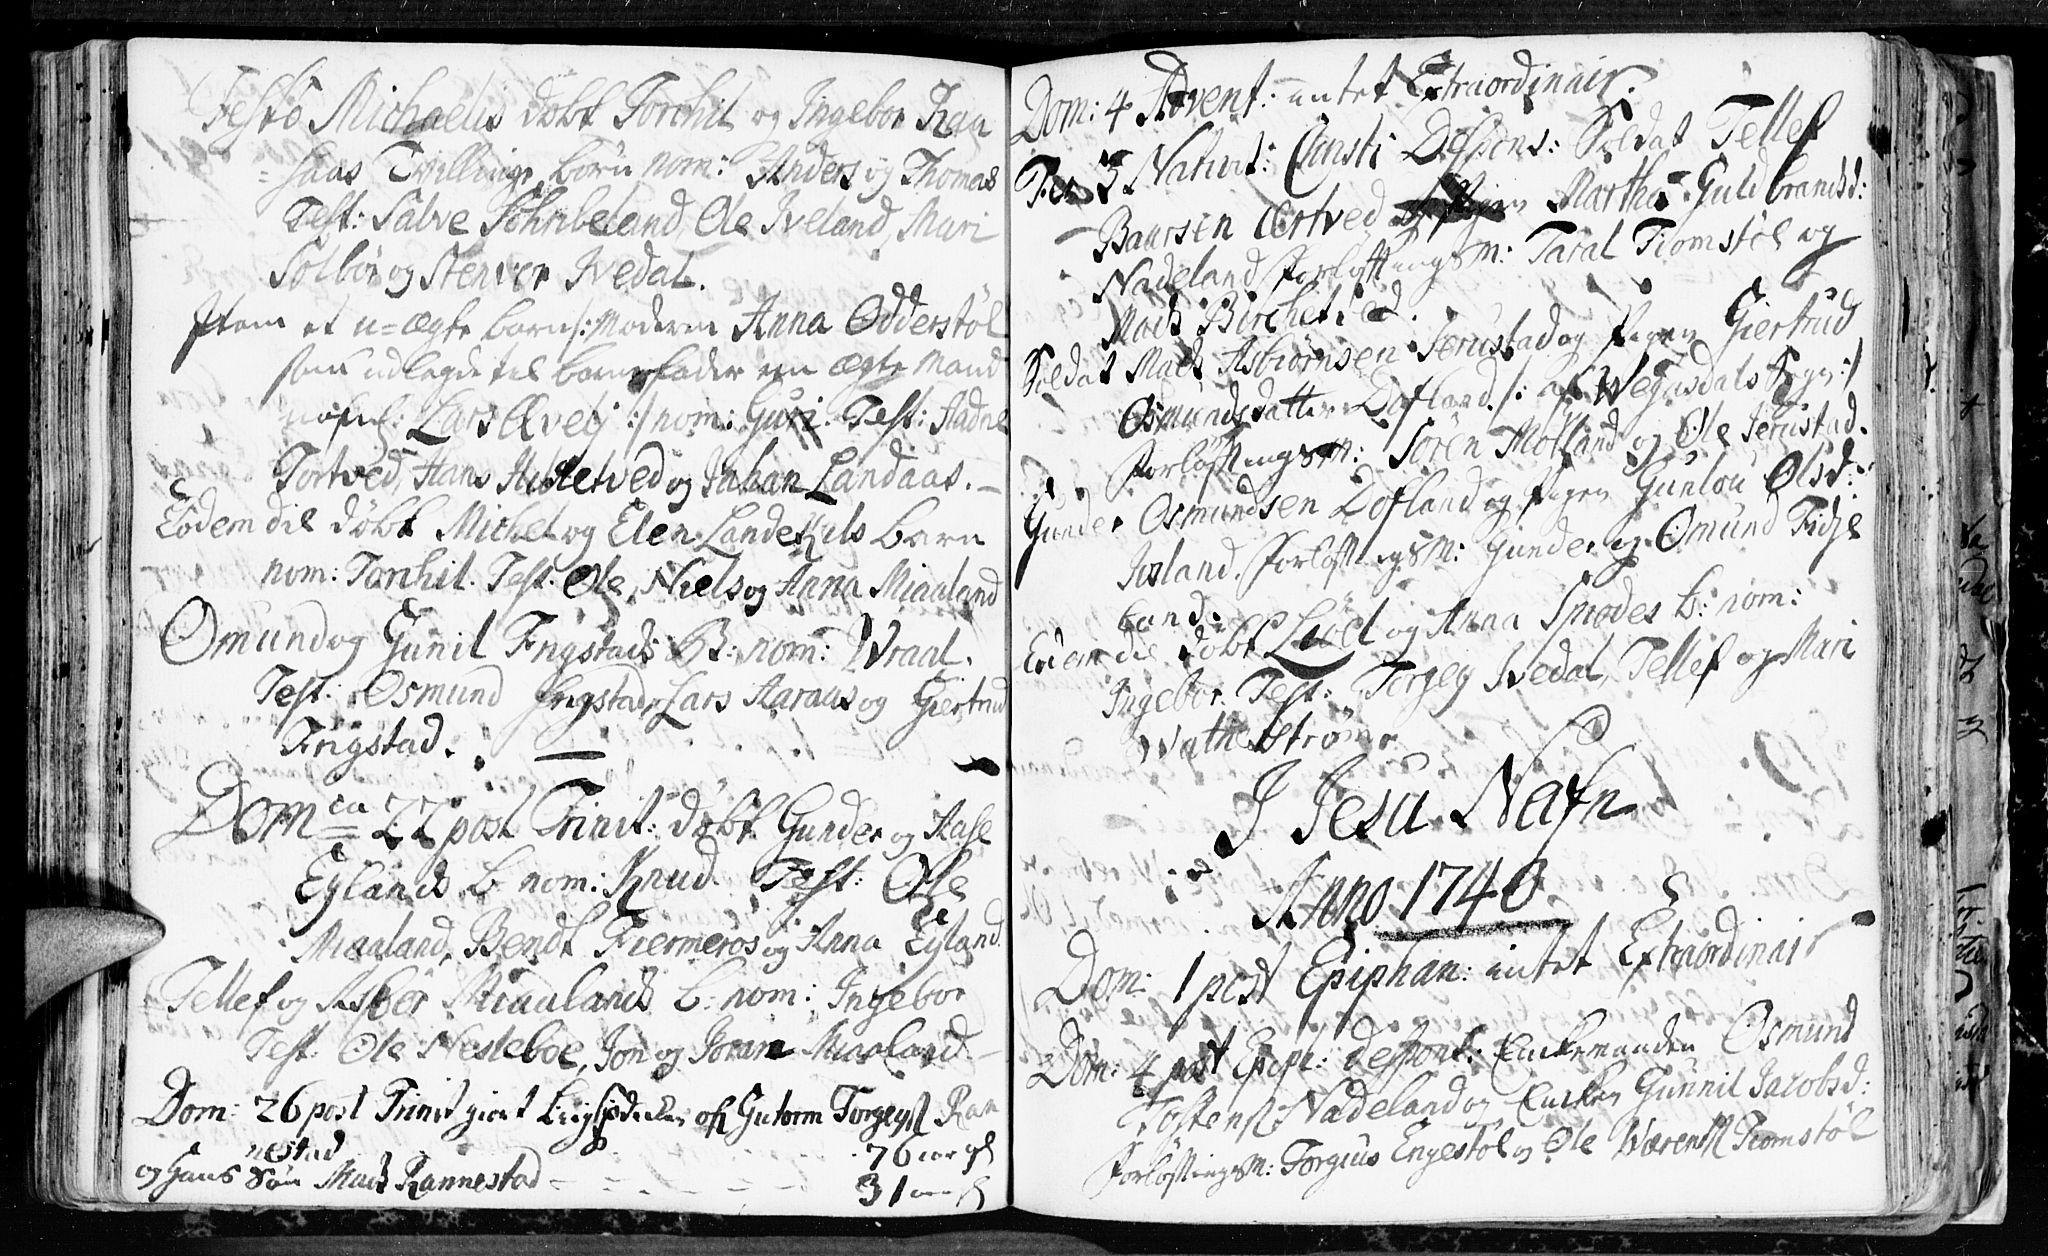 Festo Michaelis døbt Torchil og Ingebor Raa
=saas Tvillinge børn nom: Anders og Thomas
Test: Salve Føhnbeland, Ole Iveland, Mari
Solbør og Stenver Ivedal.
Item et u=ægte barn /: Moderen Anna Odderstøl
som udlegde til barnefader en ægte Mand
Lars :/ nom: Guri. Test: Aadne
Tortved, Hans og Johan Landaas.
Eodem die døbt Michel og Elen Landekils barn
nom: Torchil. Test: Ole, Niels og Anna Miaaland
Omund og Gunil Frigstads B: nom: Wraal.
Test: Osmund Frigstad, Lars Aaraas og Giertrud
Frigstad.
Dom ca 22 post Trinit: døbt Gunder og Aase
Eylands b: nom: Knud. Test: Ole
Miaaland, Bendt Fiermeros og Anna Eyland.
Tellef og Asber Miaalands b: nom: Ingebor
Test: Ole Nesteboe, Jon og Joran Miaaland.
Dom: 26 post Trinit giort Liigprediken ofr Gutorm Torgeys Ran
nestad 76 aar gl
og hans Søn Mads Rannestad 31 aar gl
Dom: 4 Advent: intet Extraordinair.
Fer 3 Nativit: Christi Despons: Soldat Tellef
Baursen Ertved Pigen Martha Guldbrandsd:
Nadeland Forløftningsm: Taral Tiomstøl og
Mads Birchetved.
Soldat Mads Asbiørnsen Ierustad og Pigen Giertrud
Osmundsdatter Dofland /: af Wegusdals Sogn :/
Forløftningsm: Søren Mosland og Ole Ierustad.
Gunder Osmundsen Dofland og Pigen Gunlou Olsd:
Iusland. Forløftningsm: Gunder og Omund Fidje
land.
Eodem die døbt Liøel og Anna Smødes b: nom:
Ingebor. Test: Torgey Ivedal, Tellef og Mari
Wathestrøm.
I Jesu Nafn
Anno 1740
Dom: 1 post Epiphan: intet Extraordinair
Dom: 4 post Epiph: despons: Enkemanden Osmund
Tostens: Nadeland og Enken Gunnil Jacobsd:
Forløftningsm: Torgius Engestøl og Ole Wærens: Tiomstøl